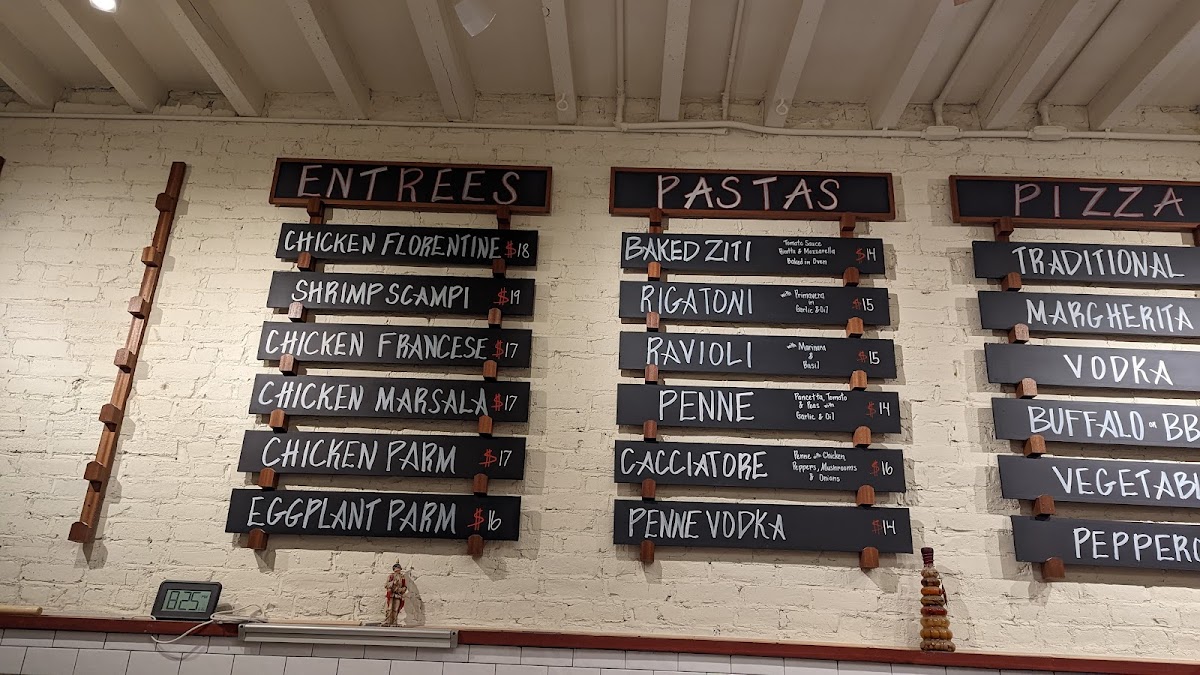 ENTREES
CHICKEN FLORENTINE $18
SHRIMP SCAMPI $19
CHICKEN FRANCESE $17
CHICKEN MARSALA $17
CHICKEN PARM $17
EGGPLANT PARM $16
PASTAS
BAKED ZITI Tomato Sauce $14
Ricotta & Mozzarella
Baked in Oven
RIGATONI with Primavera $15
in
Garlic & Oil
RAVIOLI with Marinara $15
&
Basil
PENNE Pancetta, Tomato $14
& Peas with
Garlic & Oil
CACCIATORE Penne with Chicken $16
Peppers, Mushrooms
& Onions
PENNE VODKA $14
PIZZA
TRADITIONAL
MARGHERITA
VODKA
BUFFALO or BB
VEGETABL
PEPPERO
8:25 PM